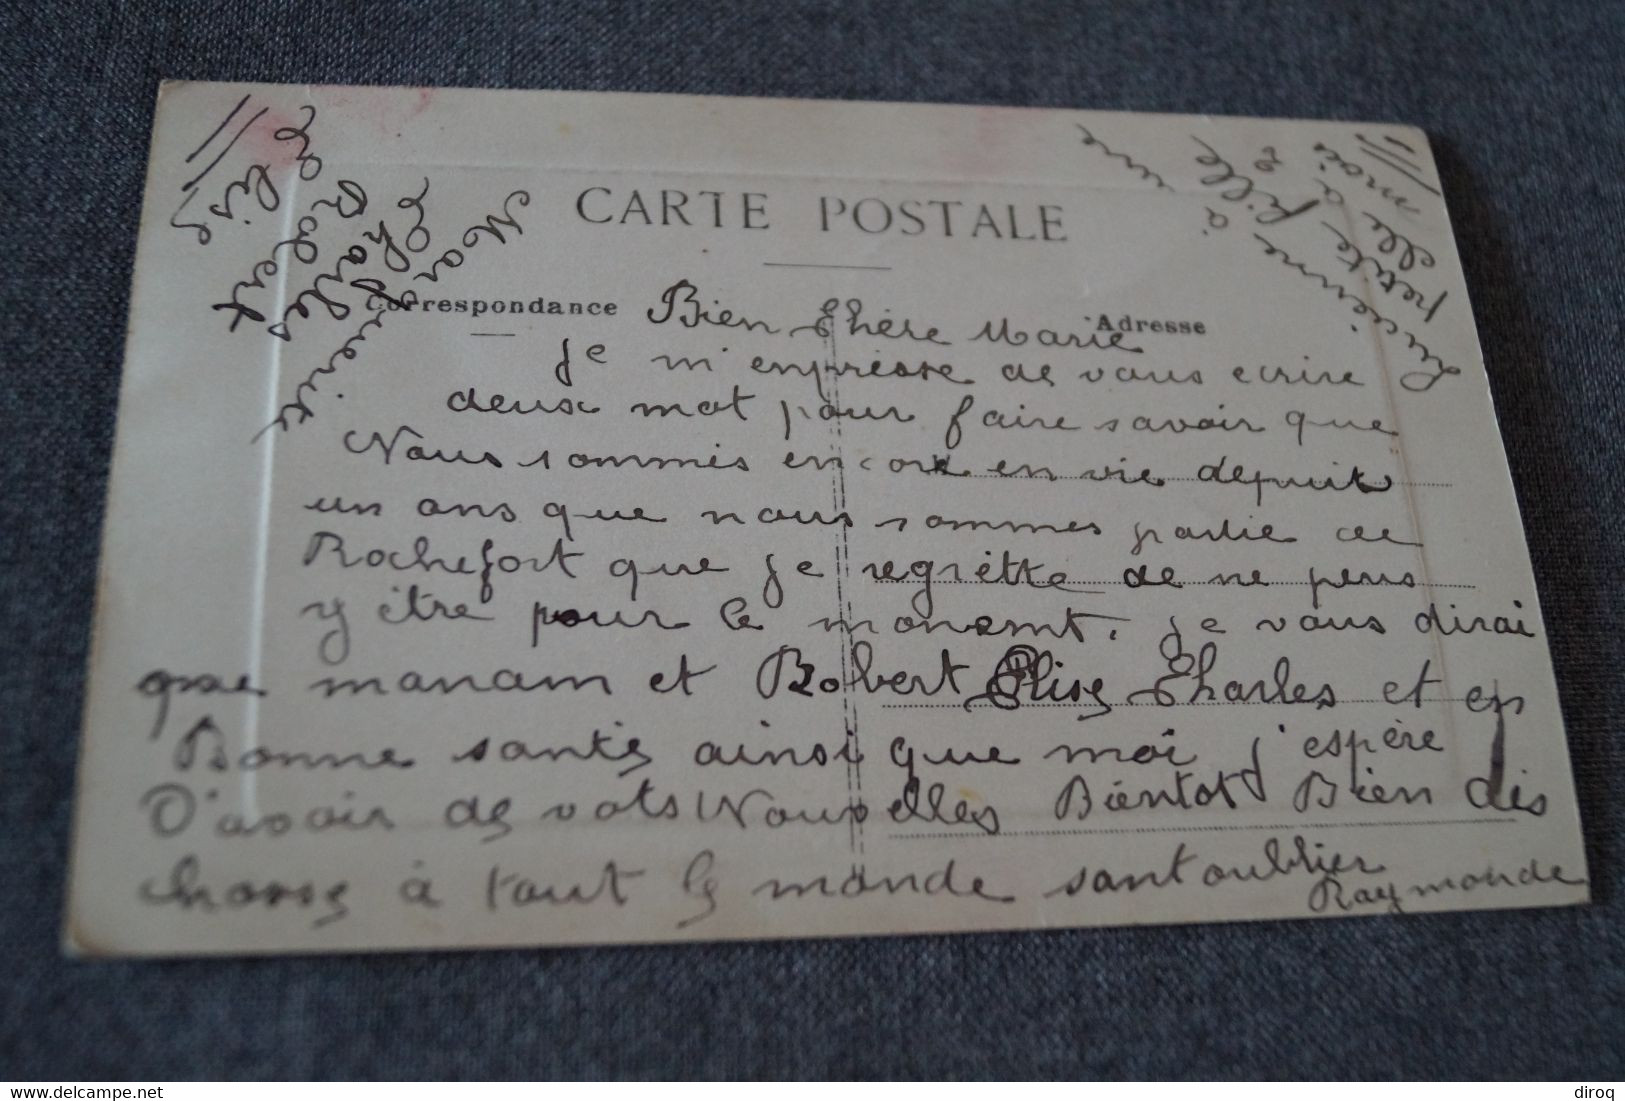 CARTE POSTALE
Correspondance
Adresse
Bien Chère Marie
Je m'enpresse de vous ecrire
deux mot pour faire savoir que
Nous sommes encore en vie depuit
un ans que nous sommes partie de
Rochefort que je regrètte de ne pens
y être pour le monemt. je vous dirai
que manam et Robert Elise Charles et en
Bonne santé ainsi que moi j'espère
D'avoir de vots Nouvelles Bientot Bien dis
chosse à tout le monde sant oublier
Raymonde
Elise
Robert
Charles
Marguerite
Lucienne à une
petite fille
elle a 2
mois
diroq